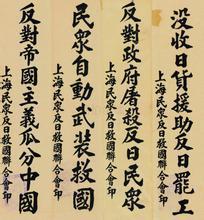 没收日货援助反日罷工
上海民衆反日救國聯合會印
反對政府屠殺反日民衆
上海民衆反日救國聯合會印
民衆自動武装救國
上海民衆反日救國聯合會印
反對帝國主義瓜分中國
上海民衆反日救國聯合會印